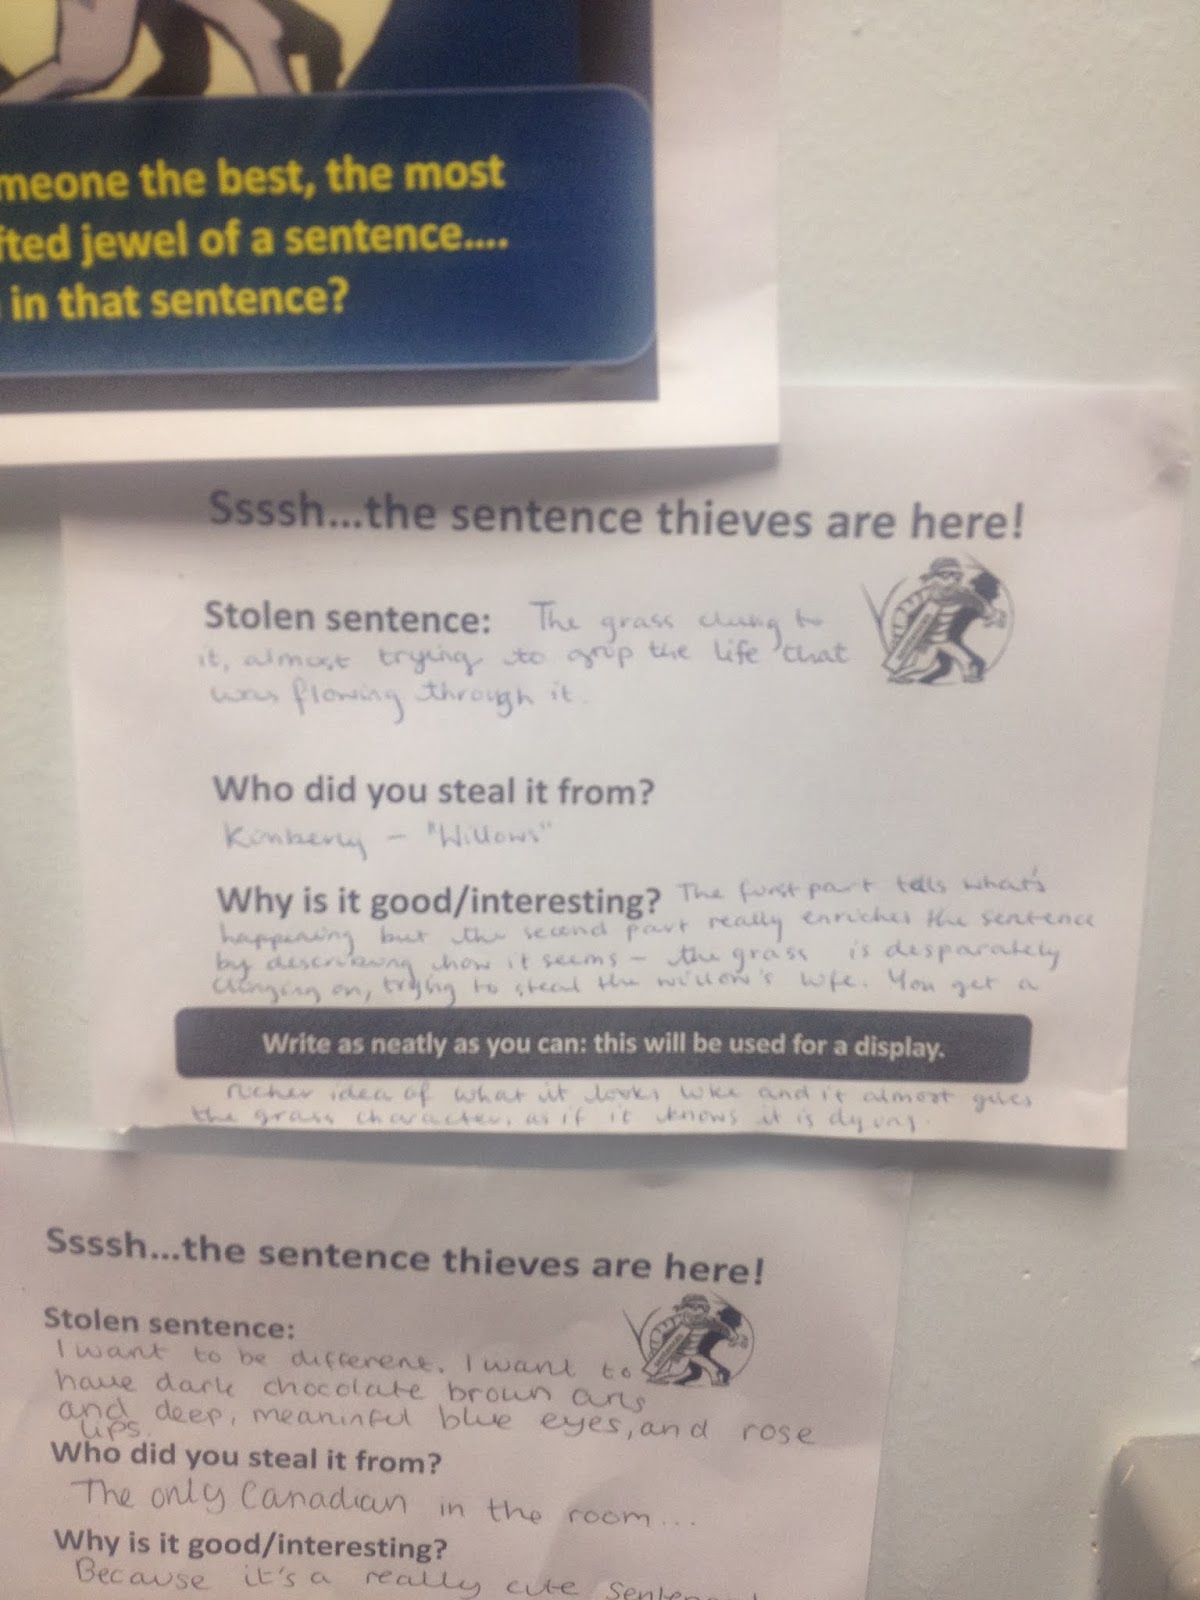 meone the best, the most
fted jewel of a sentence....
in that sentence?
Ssssh...the sentence thieves are here!
Stolen sentence: The grass clung to
it, almost trying to grip the life that
was flowing through it.
Who did you steal it from?
Kimberly - "Willows"
Why is it good/interesting? The first part tells what's
happening but the second part really enriches the sentence
by describing how it seems - the grass is desparately
clinging on, trying to steal the willow's life. You get a
Write as neatly as you can: this will be used for a display.
richer idea of what it looks like and it almost gives
the grass character, as if it knows it is dying.
Ssssh...the sentence thieves are here!
Stolen sentence:
I want to be different. I want to
have dark chocolate brown
and deep, meaninful blue eyes, and rose
lips.
Who did you steal it from?
The only Canadian in the room...
Why is it good/interesting?
Because it's a really cute